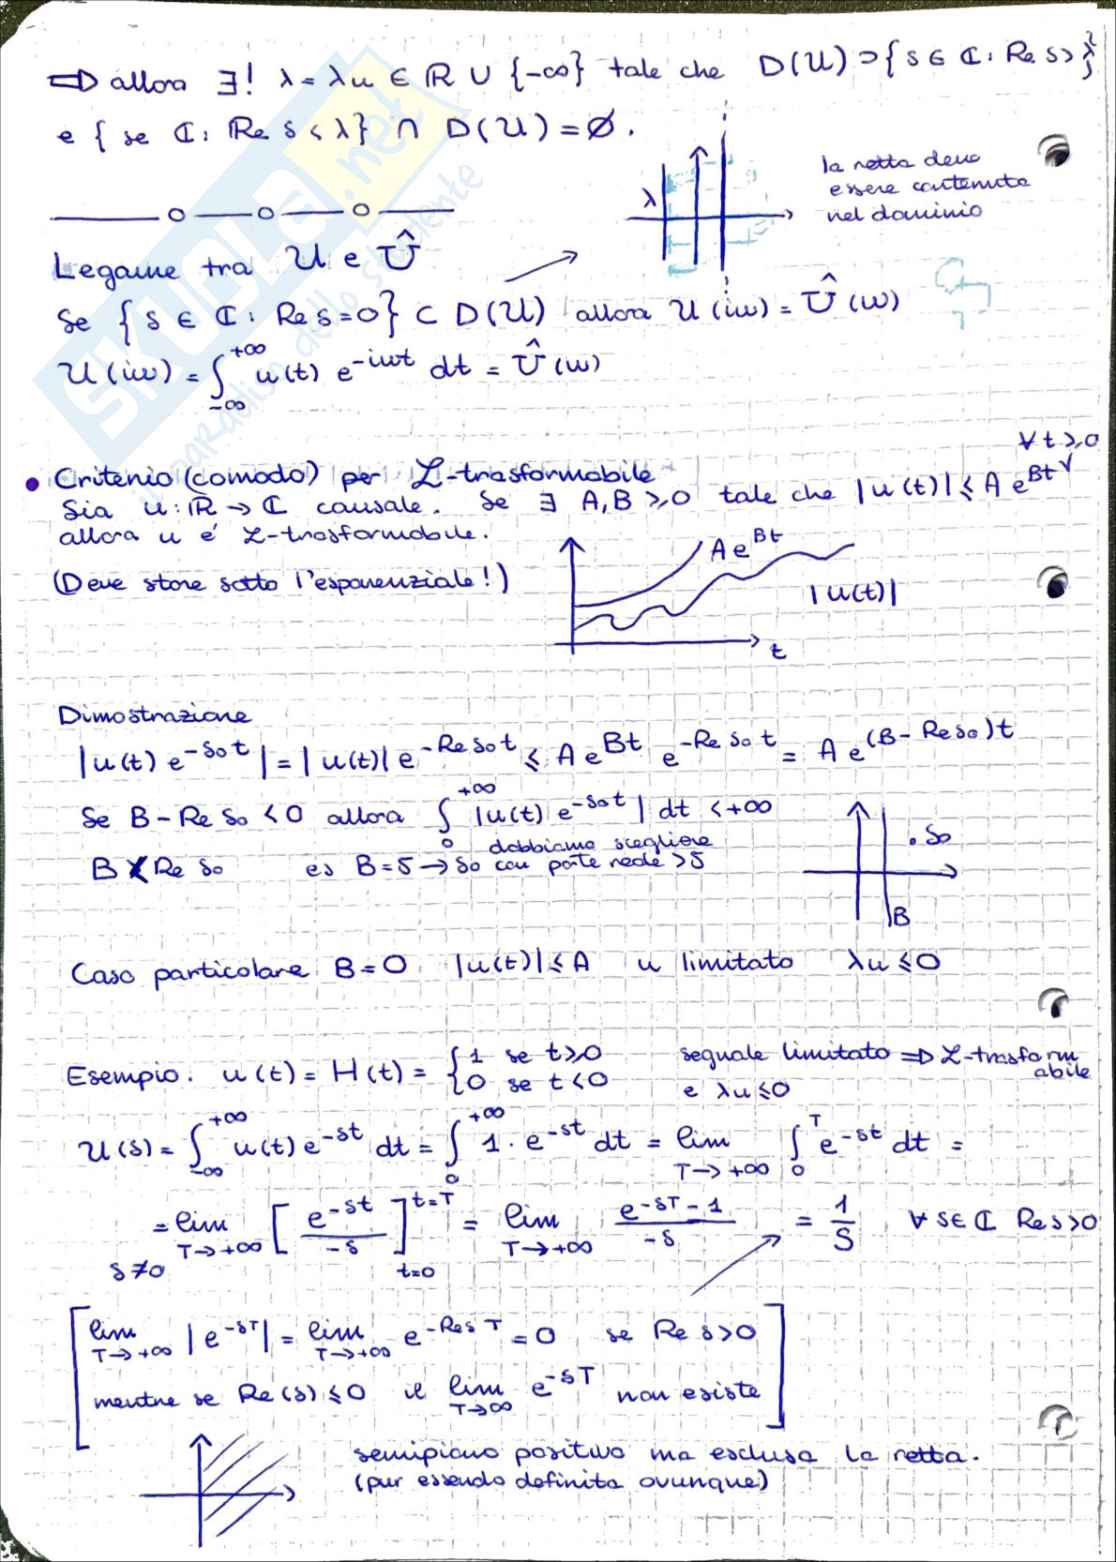 => allora ∃! λ = λu ∈ ℝ ∪ {-∞} tale che D(U) ⊃ {s ∈ ℂ : Re s > λ}
e {s∈ ℂ : Re s < λ} ∩ D(U) = ∅.
λ
la retta deve
essere contenuta
nel dominio
Legame tra U e Û
Se {s ∈ ℂ : Re s = 0} ⊂ D(U) allora U(iω) = Û(ω)
U(iω) = ∫_{-∞}^{+∞} u(t) e^{-iωt} dt = Û(ω)
• Criterio (comodo) per ℒ-trasformabile
Sia u: ℝ → ℂ causale. Se ∃ A, B ⩾ 0 tale che |u(t)| ⩽ A e^{Bt} ∀ t ⩾ 0
allora u é ℒ-trasformabile.
(Deve stare sotto l'esponenziale!)
A e^{Bt}
|u(t)|
t
Dimostrazione
|u(t) e^{-s₀t}| = |u(t)| e^{-Re s₀ t} ⩽ A e^{Bt} e^{-Re s₀ t} = A e^{(B - Re s₀)t}
Se B - Re s₀ < 0 allora ∫_0^{+∞} |u(t) e^{-s₀t}| dt < +∞
B < Re s₀ es B = 5 → s₀ con parte reale > 5
dobbiamo scegliere
. s₀
B
Caso particolare B = 0 |u(t)| ⩽ A u limitato λu ⩽ 0
Esempio. u(t) = H(t) = {1 se t ⩾ 0
0 se t < 0
segnale limitato => ℒ-trasformabile
e λu ⩽ 0
U(s) = ∫_{-∞}^{+∞} u(t) e^{-st} dt = ∫_0^{+∞} 1 · e^{-st} dt = lim_{T→+∞} ∫_0^T e^{-st} dt =
= lim_{T→+∞} [e^{-st}/-s]_{t=0}^{t=T} = lim_{T→+∞} (e^{-sT} - 1)/-s = 1/s ∀ s ∈ ℂ Re s > 0
s ≠ 0
[lim_{T→+∞} |e^{-sT}| = lim_{T→+∞} e^{-Re s T} = 0 se Re s > 0
mentre se Re(s) ⩽ 0 il lim_{T→∞} e^{-sT} non esiste]
semipiano positivo ma esclusa la retta.
(pur essendo definita ovunque)
SKUOLA.net
il paradiso dello studente